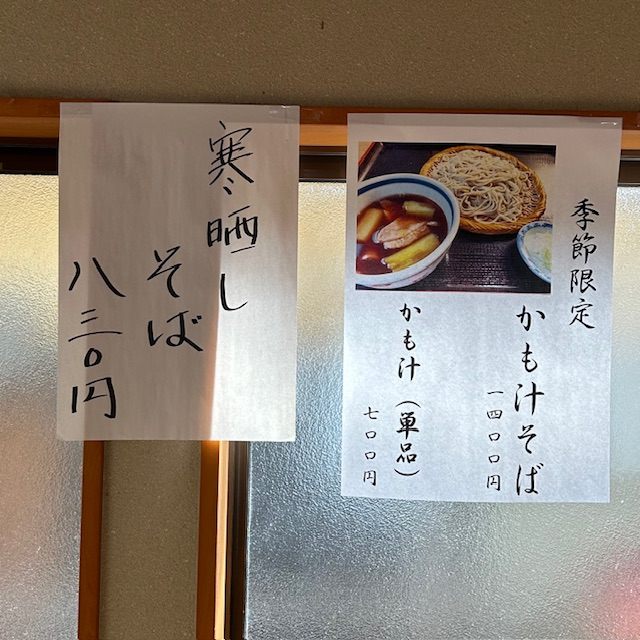 寒晒し
そば
八三〇円
季節限定
かも汁そば
一四〇〇円
かも汁（単品）
七〇〇円